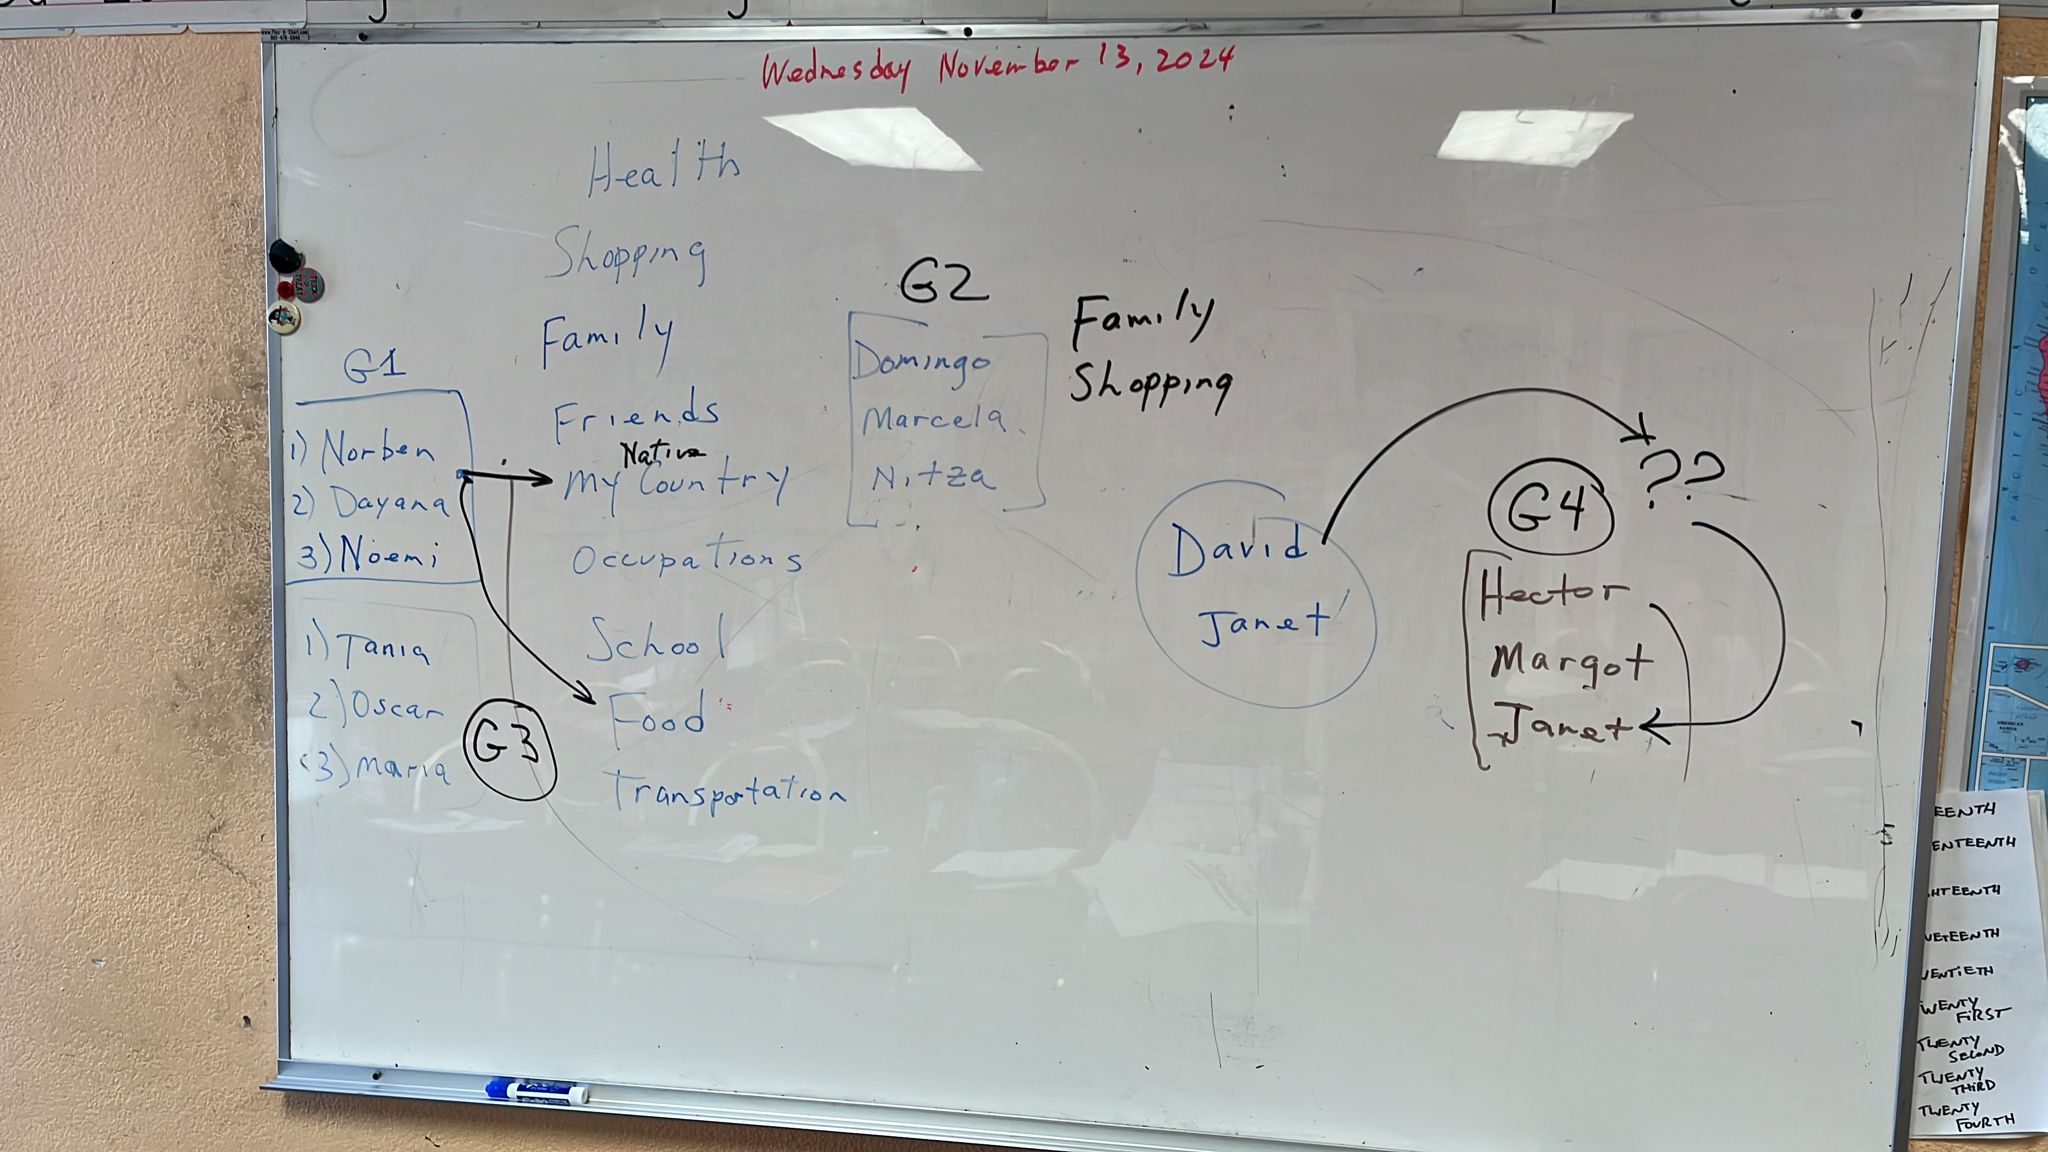 Wednesday November 13, 2024
Health
Shopping
Family
Friends
Native
My Country
Occupations
School
Food
Transportation
G1
1) Norben
2) Dayana
3) Noemi
1) Tania
2) Oscar
3) Maria
G3
G2
Domingo
Marcela
Nitza
Family
Shopping
David
Janet
??
G4
Hector
Margot
Janet
PACIFIC OCE
EENTH
ENTEENTH
HTEENTH
NETEENTH
WENTIETH
WENTY
FIRST
TWENTY
SECOND
TWENTY
THIRD
TWENTY
FOURTH